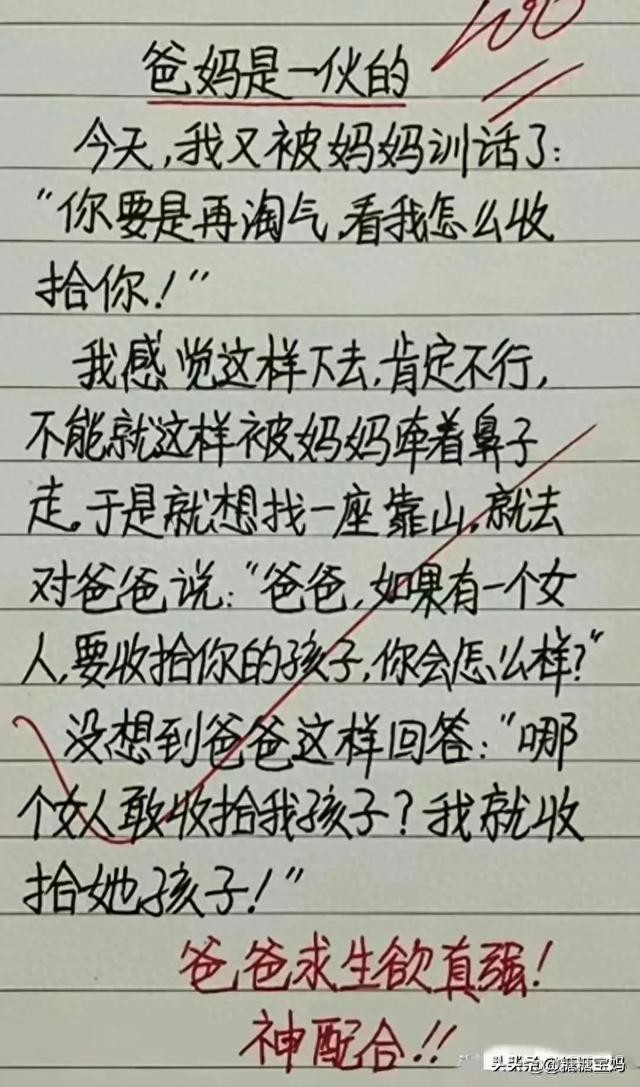 100
爸妈是一伙的
今天,我又被妈妈训话了:
“你要是再淘气,看我怎么收
拾你!”
我感觉这样下去,肯定不行,
不能就这样被妈妈牵着鼻子
走。于是就想找一座靠山。就去
对爸爸说:“爸爸,如果有一个女
人,要收拾你的孩子,你会怎么样?”
没想到爸爸这样回答:“哪
个女人敢收拾我孩子?我就收
拾她孩子!”
爸爸求生欲真强!
神配合!!
头条 @糖糖宝妈